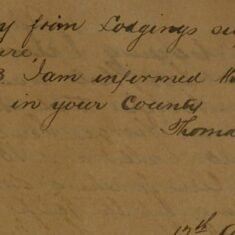 from Lodgings
I am informed
in your County
Thoma
12th